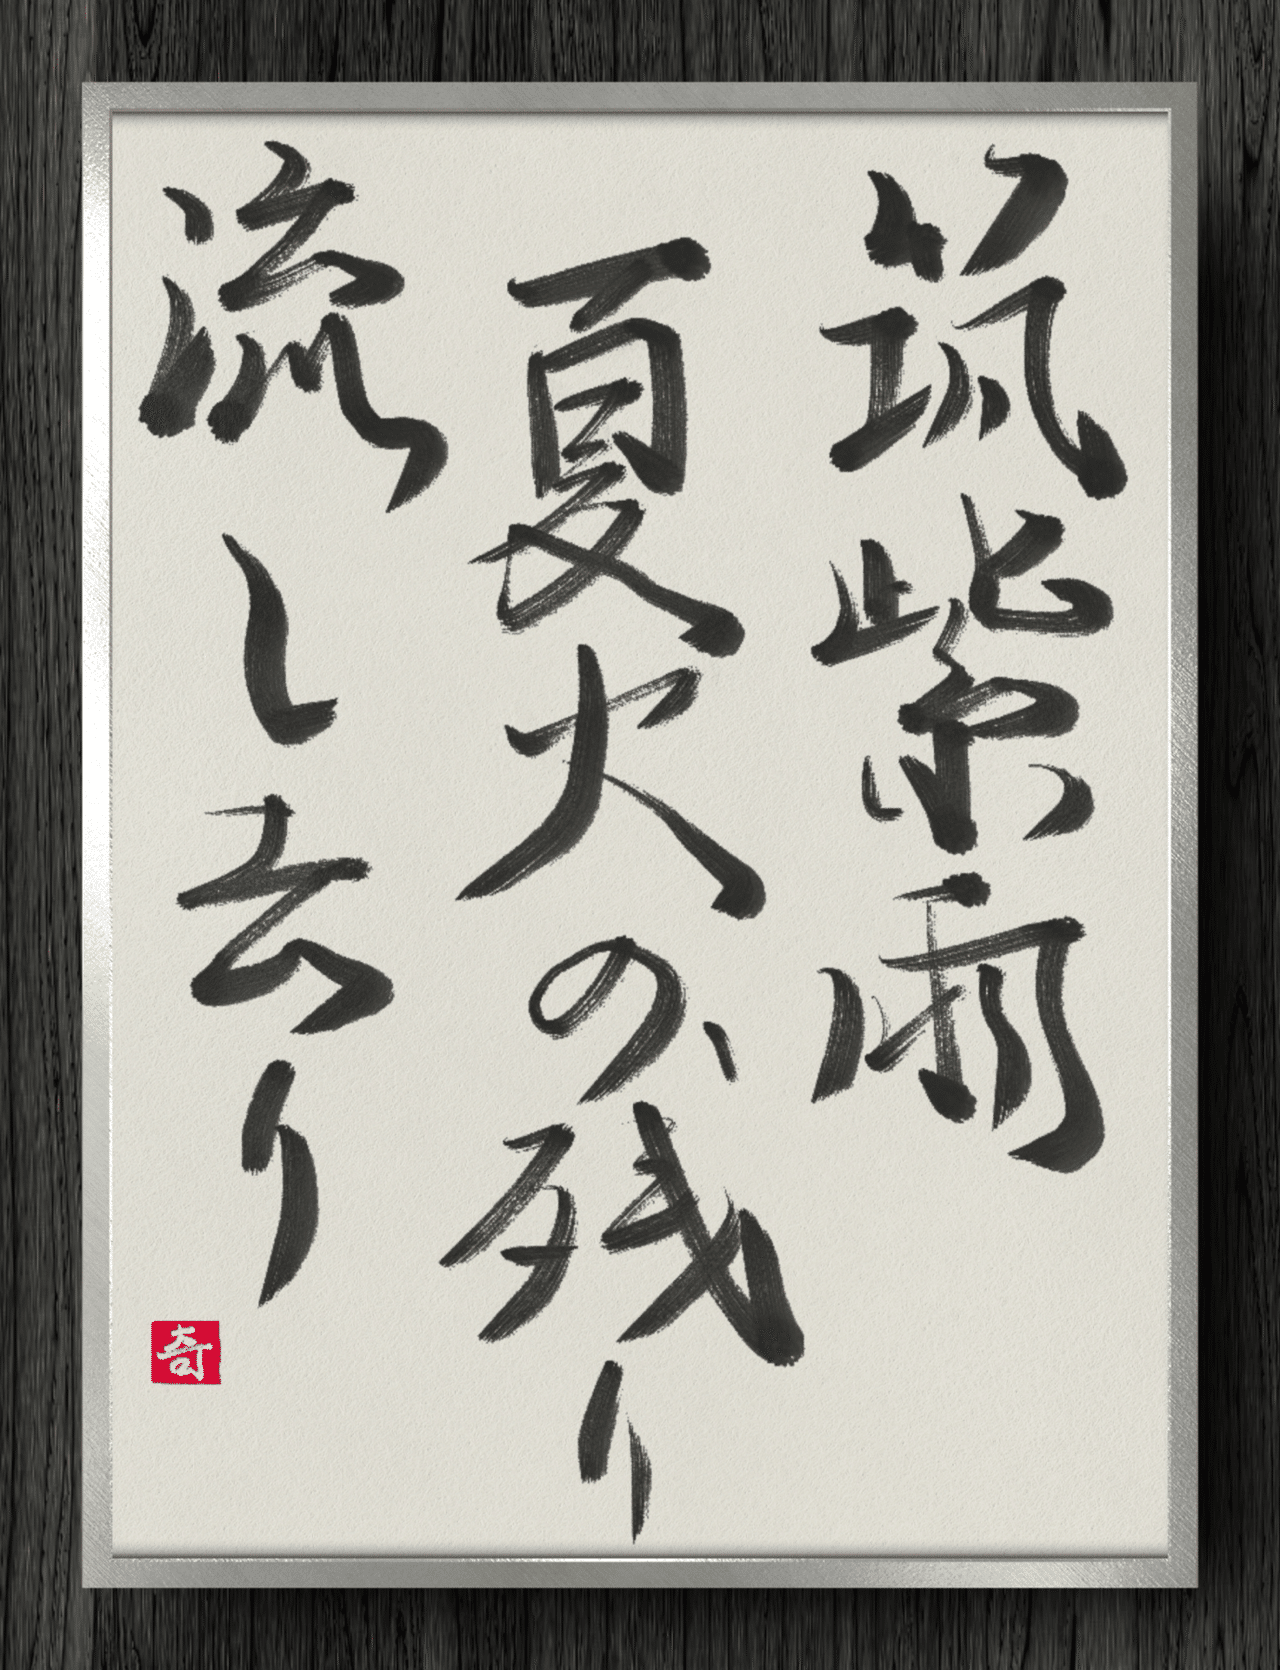 筑紫雨
夏火の残り
流し去り
奇